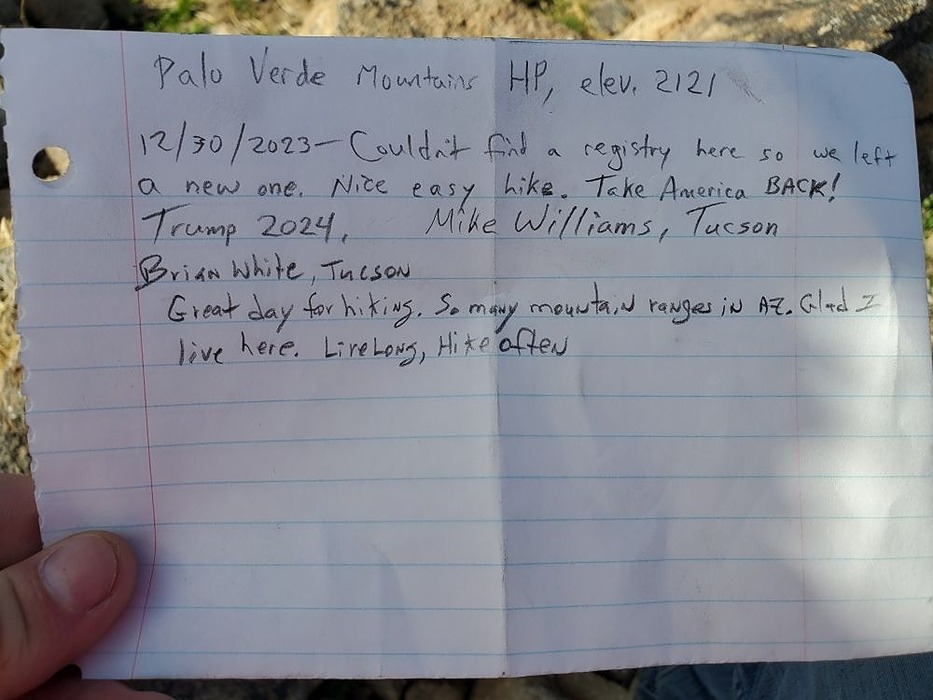 Palo Verde Mountains HP, elev. 2121
12/30/2023- Couldn't find a registry here so we left
a new one. Nice easy hike. Take America BACK!
Trump 2024, Mike Williams, Tucson
Brian White, Tucson
Great day for hiking. So many mountain ranges in AZ. Glad I
live here. Live Long, Hike often